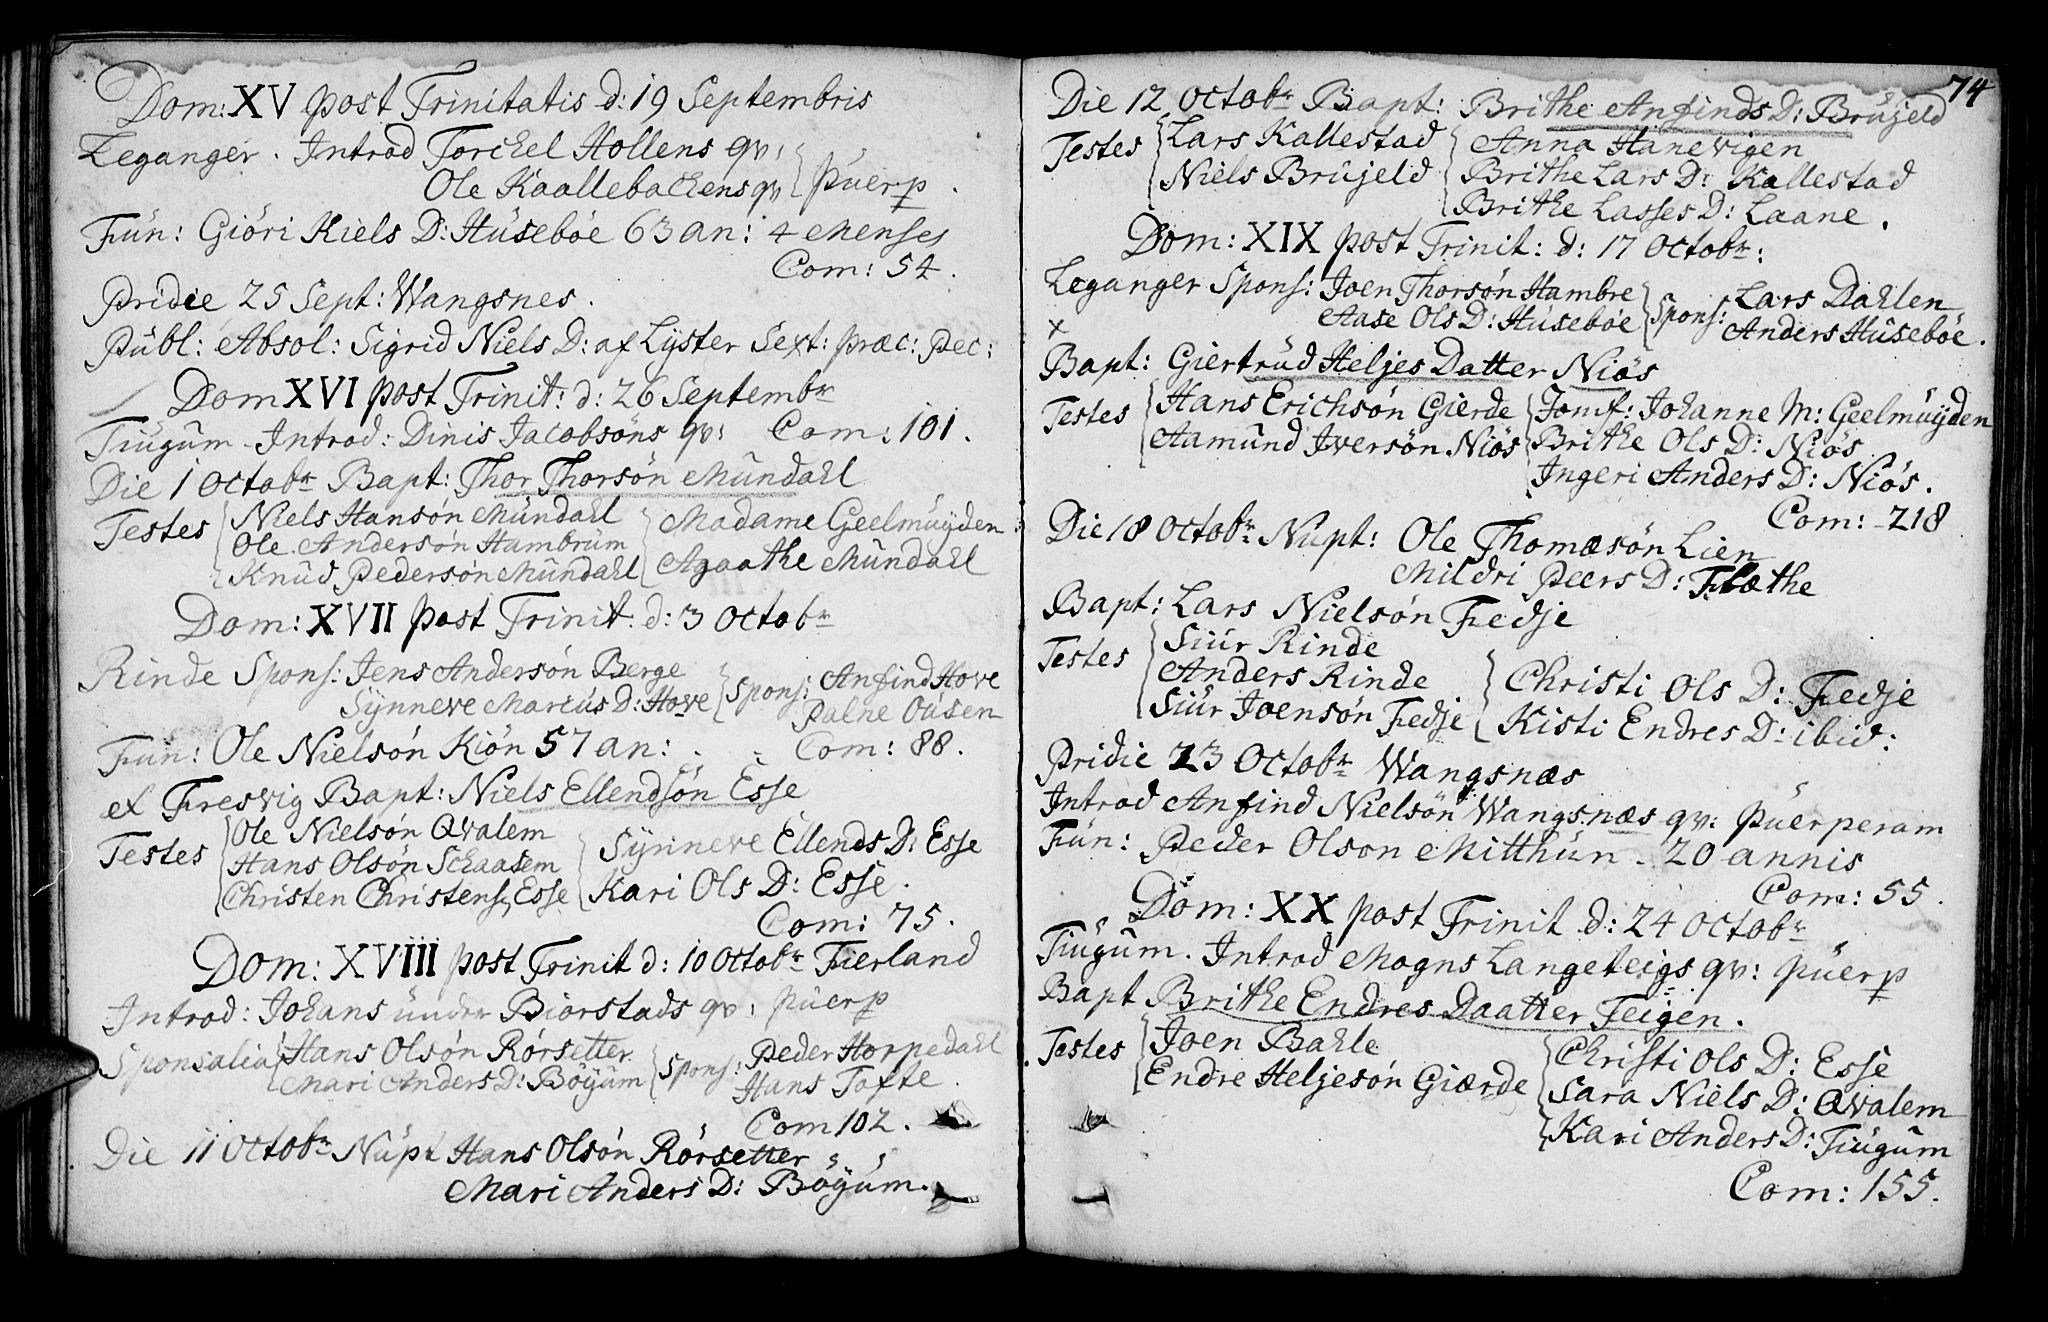 Dom: XV post Trinitatis d: 19 Septembris
Leganger. Introd Torckel Hollens qv:
Ole Kaallebackens qv } Puerp.
Fun: Giöri Kiels D: Husebøe 63 an: 4 Menses
Com: 54.
Pridie 25 Sept: Wangsnes.
Publ: Absol: Sigrid Niels D: af Lyster Sext: præc: Pec:
Dom XVI post Trinit: d: 26 Septembr
Tiugum. Introd: Dinis Jacobsöns qv: Com: 101.
Die 1 Octobr Bapt: Thor Thorsön Mundahl
Testes { Niels Hansön Mundahl { Madame Geelmuyden
Ole Andersön Hambrum
Knud Pedersön Mundahl Agaathe Mundahl
Dom: XVII post Trinit: d: 3 Octobr
Rinde Spons: Jens Andersön Berge } Spons: Anfind Hove
Synneve Marcus D: Hove Palne Ousen
Fun: Ole Nielsön Kiön 57 an: Com: 88.
et Fresvig Bapt: Niels Ellendsön Esse
Testes { Ole Nielsön Qvalem { Synneve Ellends D: Esse
Hans Olsön Schaasem
Christen Christens: Esse Kari Ols D: Esse.
Com: 75.
Dom: XVIII post Trinit d: 10 Octobr Fierland
Introd: Johans under Biorstads qv: puerp
Sponsalia { Hans Olsön Rörsetter { Spons: Peder Horpedahl
Mari Anders D: Böyum Hans Tofte.
Com 102.
Die 11 Octobr Nupt Hans Olsön Rörsetter
Mari Anders D: Böyum.
74
Die 12 Octobr Bapt: Brithe Anfinds D: Brujeld
Testes { Lars Kallestad { Anna Hanevigen
Niels Brujeld Brithe Lars D: Kallestad
Brithe Lasses D: Laane.
Dom: XIX post Trinit: d: 17 Octobr:
Leganger Spons: Joen Thorsön Hambre } Spons: Lars Dahlen
x Aase Ols D: Husebøe Anders Husebøe.
Bapt: Giertrud Heljes Datter Niös
Testes { Hans Erichsön Gierde { Jomf: Johanne M: Geelmuyden
Aamund Iversön Niös Brithe Ols D: Niös
Ingeri Anders D: Niös.
Com: 218
Die 18 Octobr Nupt: Ole Thomæsön Lien
Mildri Peers D: Flæthe
Bapt: Lars Nielsön Fedje
Testes { Siur Rinde
Anders Rinde { Christi Ols D: Fedje
Siur Joensön Fedje Kisti Endres D: ibid:
Pridie 23 Octobr Wangsnæs
Introd Anfind Nielsön Wangsnæs qv: puerperam
Fun: Peder Olson Mitthun. 20 annis
Com: 55.
Dom: XX post Trinit d: 24 Octobr
Tiugum. Introd Mogns Langeteigs qv: puerp
Bapt Brithe Endres Daatter Feigen.
Testes { Joen Bahle { Christi Ols D: Esse
Endre Heljesön Giærde Sara Niels D: Qvalem
Kari Anders D: Tiugum
Com: 155.